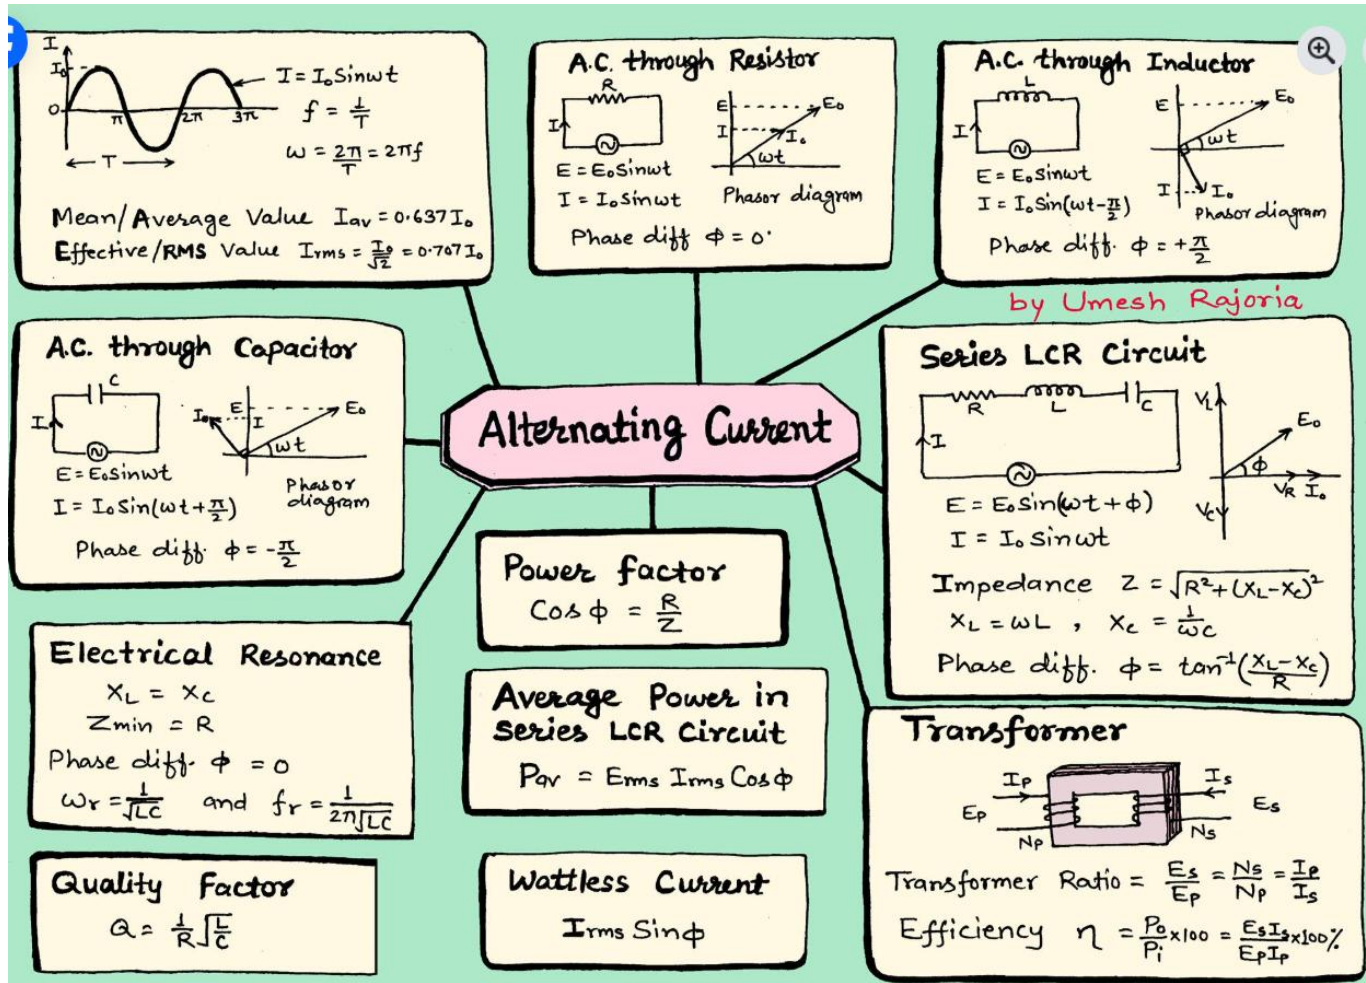 I
I₀
I = I₀ Sinωt
f = 1/T
0
π
2π
3π
T
ω = 2π/T = 2πf
Mean/Average Value Iav = 0.637 I₀
Effective/RMS Value Irms = I₀/√2 = 0.707 I₀
A.C. through Resistor
R
I
E
E₀
I
I₀
ωt
E = E₀ Sinωt
I = I₀ Sinωt
Phasor diagram
Phase diff ϕ = 0°
A.C. through Inductor
L
I
E
E₀
ωt
I
I₀
E = E₀ Sinωt
I = I₀ Sin(ωt-π/2)
Phasor diagram
Phase diff. ϕ = +π/2
by Umesh Rajoria
A.C. through Capacitor
C
I
I₀
E
I
E₀
ωt
E = E₀ Sinωt
I = I₀ Sin(ωt+π/2)
Phasor
diagram
Phase diff. ϕ = -π/2
Alternating Current
Series LCR Circuit
R
L
C
I
VL
E₀
ϕ
VR
I₀
Vc
E = E₀ Sin(ωt+ϕ)
I = I₀ Sinωt
Impedance Z = √R²+(XL-Xc)²
XL = ωL , Xc = 1/ωc
Phase diff. ϕ = tan⁻¹(XL-Xc/R)
Power factor
Cosϕ = R/Z
Electrical Resonance
XL = Xc
Zmin = R
Phase diff. ϕ = 0
ωr = 1/√LC and fr = 1/2π√LC
Average Power in
Series LCR Circuit
Pav = Erms Irms Cosϕ
Transformer
Ip
Is
Ep
Es
Np
Ns
Transformer Ratio = Es/Ep = Ns/Np = Ip/Is
Efficiency η = Po/Pi x100 = EsIs/EpIp x100%
Quality Factor
Q = 1/R √L/C
Wattless Current
Irms Sinϕ